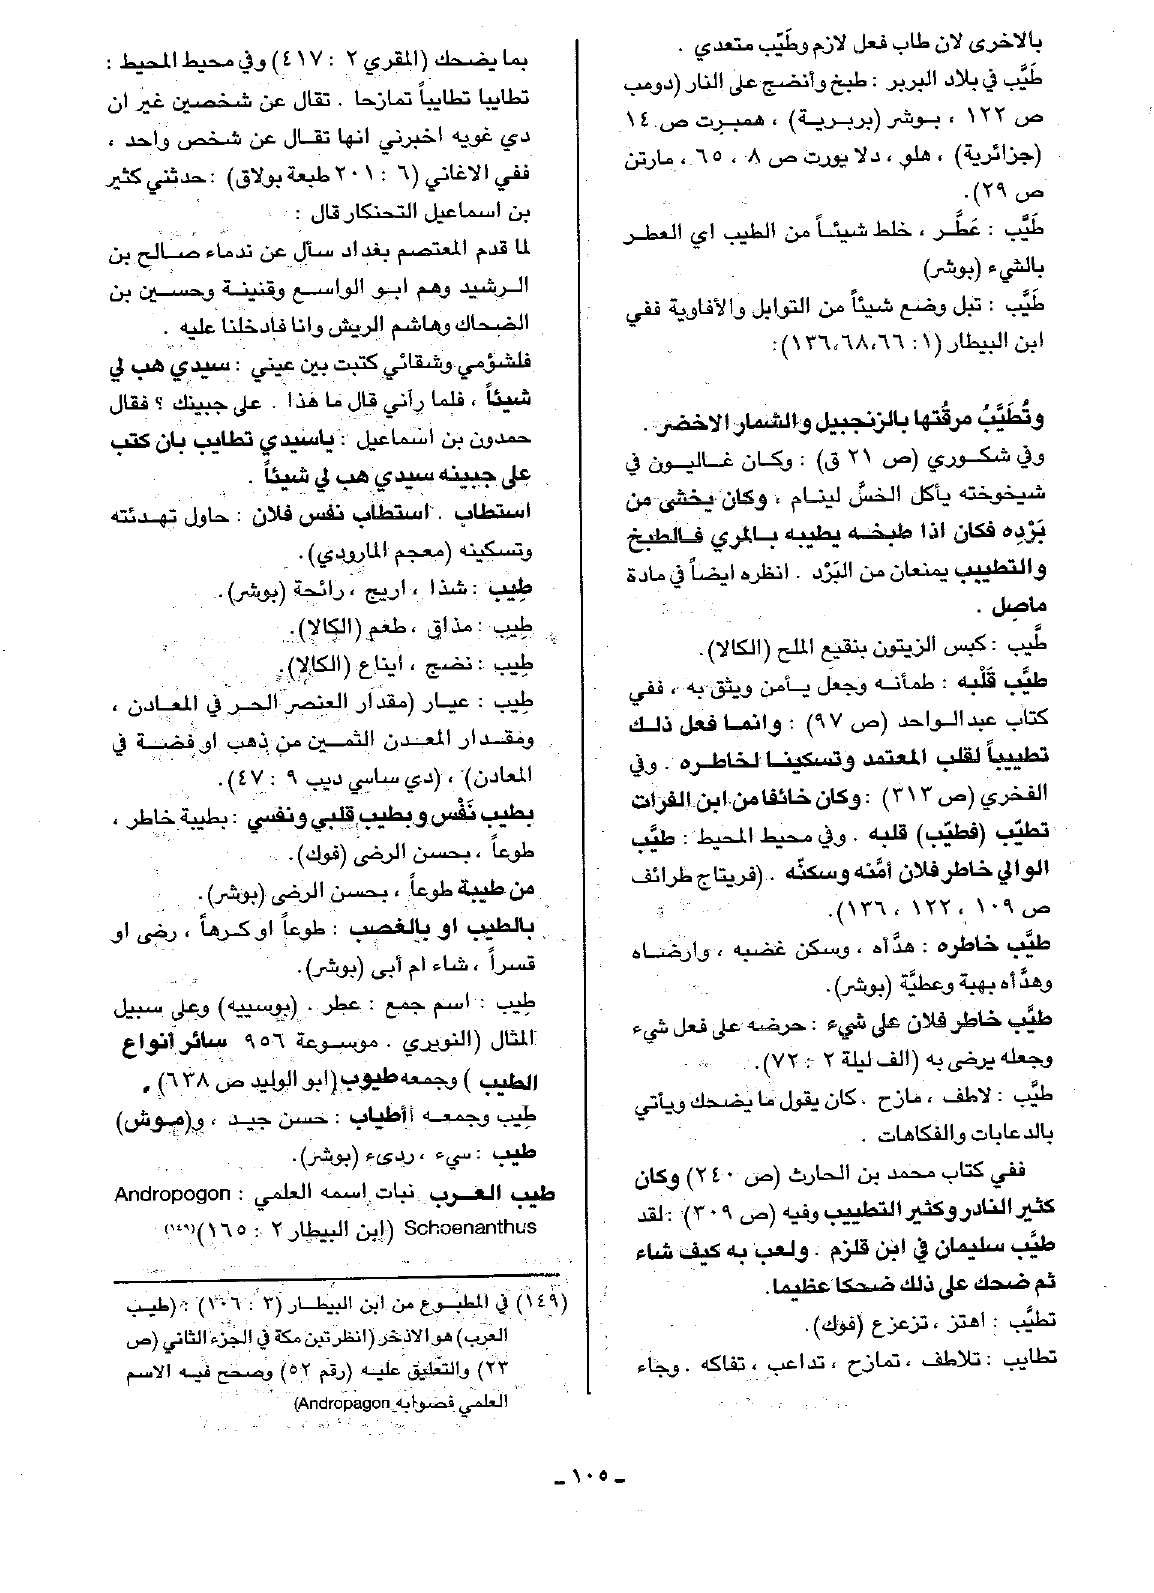 بالاخرى لان طاب فعل لازم وطَيَّب متعدي .
طَيَّب في بلاد البربر : طبخ وأنضج على النار (دومب
ص ١٢٢ ، بوشر (بربرية) ، همبرت ص ١٤
(جزائرية) ، هلو ، دلا بورت ص ٨ ، ٦٥ ، مارتن
ص ٢٩).
طَيَّب : عَطَّر ، خلط شيئاً من الطيب اي العطر
بالشيء (بوشر)
طَيَّب : تبل وضع شيئاً من التوابل والأفاوية ففي
ابن البيطار (١ : ٦٦،٦٨،١٣٦):
وتُطَيَّبُ مرقُتها بالزنجبيل والشمار الاخضر .
وفي شكوري (ص ٢١ ق) : وكان غاليون في
شيخوخته يأكل الخسَّ لينام ، وكان يخشى من
بَرْدِه فكان اذا طبخه يطيبه بالمري فالطبخ
والتطييب يمنعان من البَرْد . انظره ايضاً في مادة
ماصِل .
طَّيب : كبس الزيتون بنقيع الملح (الكالا).
طيَّب قَلْبه : طمأنه وجعل يأمن ويثق به ، ففي
كتاب عبد الواحد (ص ٩٧) : وانما فعل ذلك
تطييباً لقلب المعتمد وتسكينا لخاطره . وفي
الفخري (ص ٣١٣) : وكان خائفا من ابن الفرات
تطيّب (فطيّب) قلبه . وفي محيط المحيط : طيَّب
الوالي خاطر فلان أمَّنه وسكنّه . (فريتاج طرائف
ص ١٠٩ ، ١٢٢ ، ١٣٦).
طيَّب خاطره : هدَّأه ، وسكن غضبه ، وارضاه
وهدَّأه بهبة وعطيَّة (بوشر).
طيَّب خاطر فلان على شيء : حرضه على فعل شيء
وجعله يرضى به (الف ليلة ٢ : ٧٢).
طيَّب : لاطف ، مازح . كان يقول ما يضحك ويأتي
بالدعابات والفكاهات .
ففي كتاب محمد بن الحارث (ص ٢٤٠) وكان
كثير النادر وكثير التطييب وفيه (ص ٣٠٩) : لقد
طيَّب سليمان في ابن قلزم . ولعب به كيف شاء
ثم ضحك على ذلك ضحكا عظيما.
تطيَّب : اهتز ، تزعزع (فوك).
تطايب : تلاطف ، تمازح ، تداعب ، تفاكه . وجاء
بما يضحك (المقري ٢ : ٤١٧) وفي محيط المحيط :
تطايبا تطايباً تمازحا . تقال عن شخصين غير ان
دي غويه اخبرني انها تقال عن شخص واحد ،
ففي الاغاني (٦ : ٢٠١ طبعة بولاق) : حدثني كثير
بن اسماعيل التحنكار قال :
لما قدم المعتصم بغداد سأل عن ندماء صالح بن
الرشيد وهم ابو الواسع وقنينة وحسين بن
الضحاك وهاشم الريش وانا فادخلنا عليه .
فلشؤمي وشقائي كتبت بين عيني : سيدي هب لي
شيئاً ، فلما رأني قال ما هذا . على جبينك ؟ فقال
حمدون بن اسماعيل : ياسيدي تطايب بان كتب
على جبينه سيدي هب لي شيئاً .
استطاب . استطاب نفس فلان : حاول تهدئته
وتسكينه (معجم الماروردي).
طِيب : شذا ، اريج ، رائحة (بوشر).
طِيب : مذاق ، طعم (الكالا).
طِيب : نضج ، ايناع (الكالا).
طِيب : عيار (مقدار العنصر الحر في المعادن ،
ومقدار المعدن الثمين من ذهب او فضة في
المعادن) ، (دي ساسي ديب ٩ : ٤٧).
بطيب نَفْس وبطيب قلبي ونفسي : بطيبة خاطر ،
طوعاً ، بحسن الرضى (فوك).
من طيبة طوعاً ، بحسن الرضى (بوشر).
بالطيب او بالغصب : طوعاً او كرهاً ، رضى او
قسراً ، شاء ام أبى (بوشر).
طِيب : اسم جمع : عطر . (بوسييه) وعلى سبيل
المثال (النويري . موسوعة ٩٥٦ سائر أنواع
الطيب ) وجمعه طيوب (ابو الوليد ص ٦٣٨) .
طيب وجمعه أأطياب : حسن جيد ، و(موش)
طيب : سيء ، رديء (بوشر).
طيب العرب نبات اسمه العلمي : Andropogon
Schoenanthus (ابن البيطار ٢ : ١٦٥)(١٤٩)
(١٤٩) في المطبوع من ابن البيطار (٣ : ١٠٦) : (طيب
العرب) هو الاذخر (انظر تبن مكة في الجزء الثاني (ص
٢٣) والتعليق عليه (رقم ٥٢) وصحح فيه الاسم
العلمي فصوابه Andropagon)
ـ ١٠٥ ـ